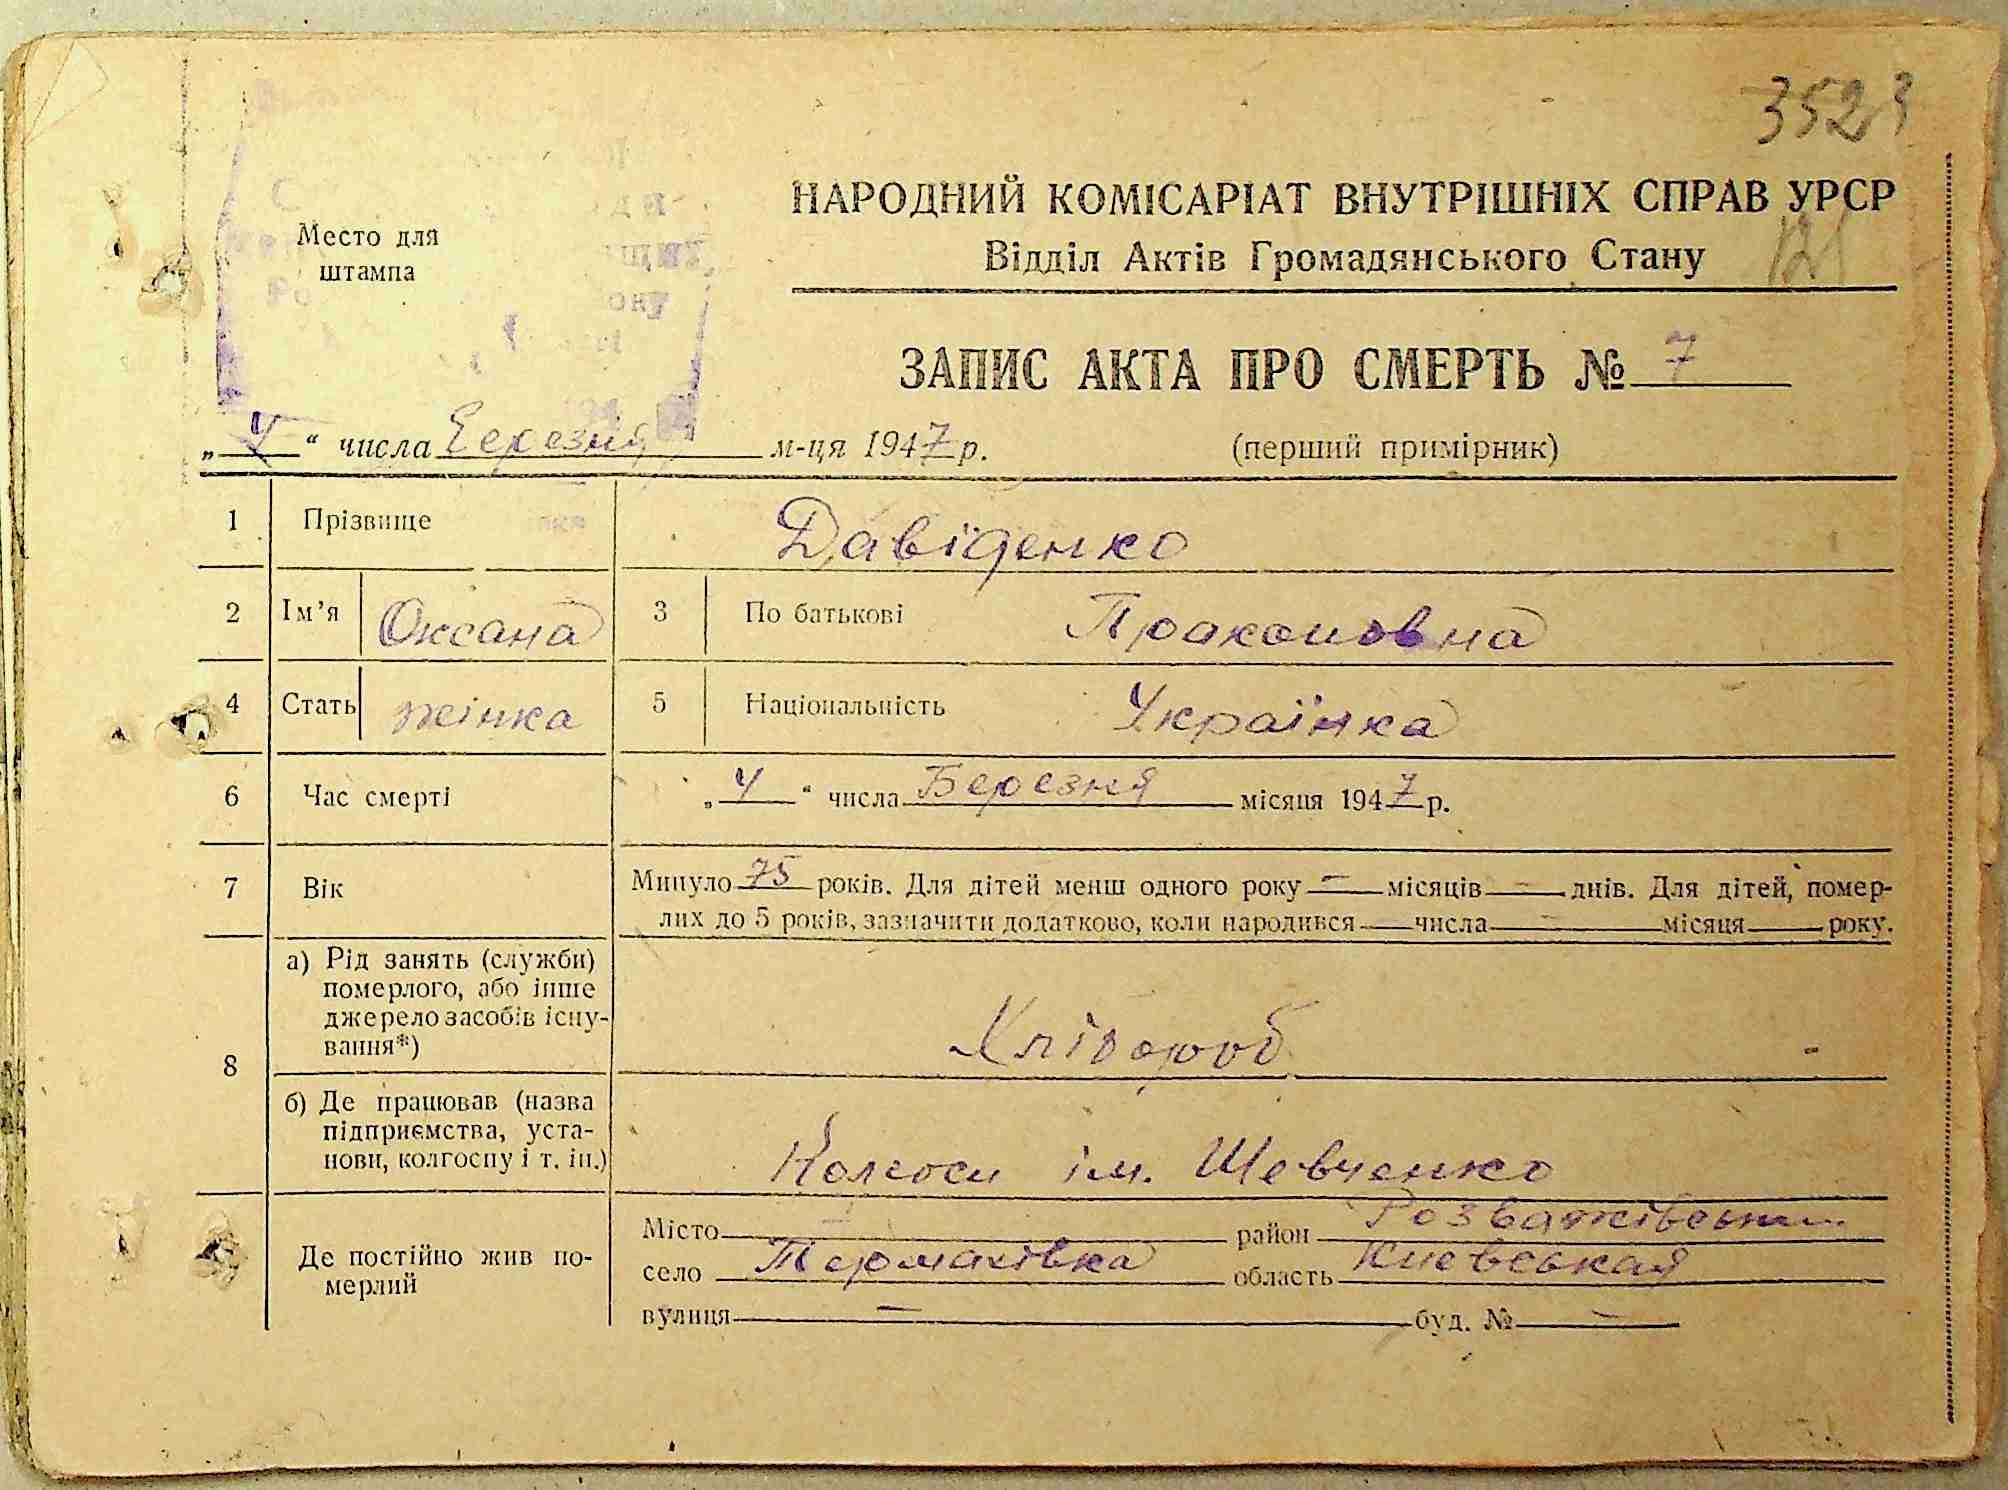 3523
НАРОДНИЙ КОМІСАРІАТ ВНУТРІШНІХ СПРАВ УРСР
Відділ Актів Громадянського Стану
121
Место для
штампа
ЗАПИС АКТА ПРО СМЕРТЬ № 7
„ 4 “ числа Березня м-ця 1947 р. (перший примірник)
1 Прізвище Давіденко
2 Ім'я Оксана 3 По батькові Пракоповна
4 Стать жінка 5 Національність Українка
6 Час смерті „ 4 “ числа Березня місяця 1947 р.
7 Вік Минуло 75 років. Для дітей менш одного року – місяців – днів. Для дітей, помер-
лих до 5 років, зазначити додатково, коли народився — числа — місяця — року.
8 а) Рід занять (служби)
померлого, або інше
джерело засобів існу-
вання*) Хлібороб
б) Де працював (назва
підприємства, уста-
нови, колгоспу і т. ін.) Колгосп ім. Шевченко
Де постійно жив по-
мерлий
Місто — район Розважівський
село Термахівка область Киевськая
вулиця — буд. № —